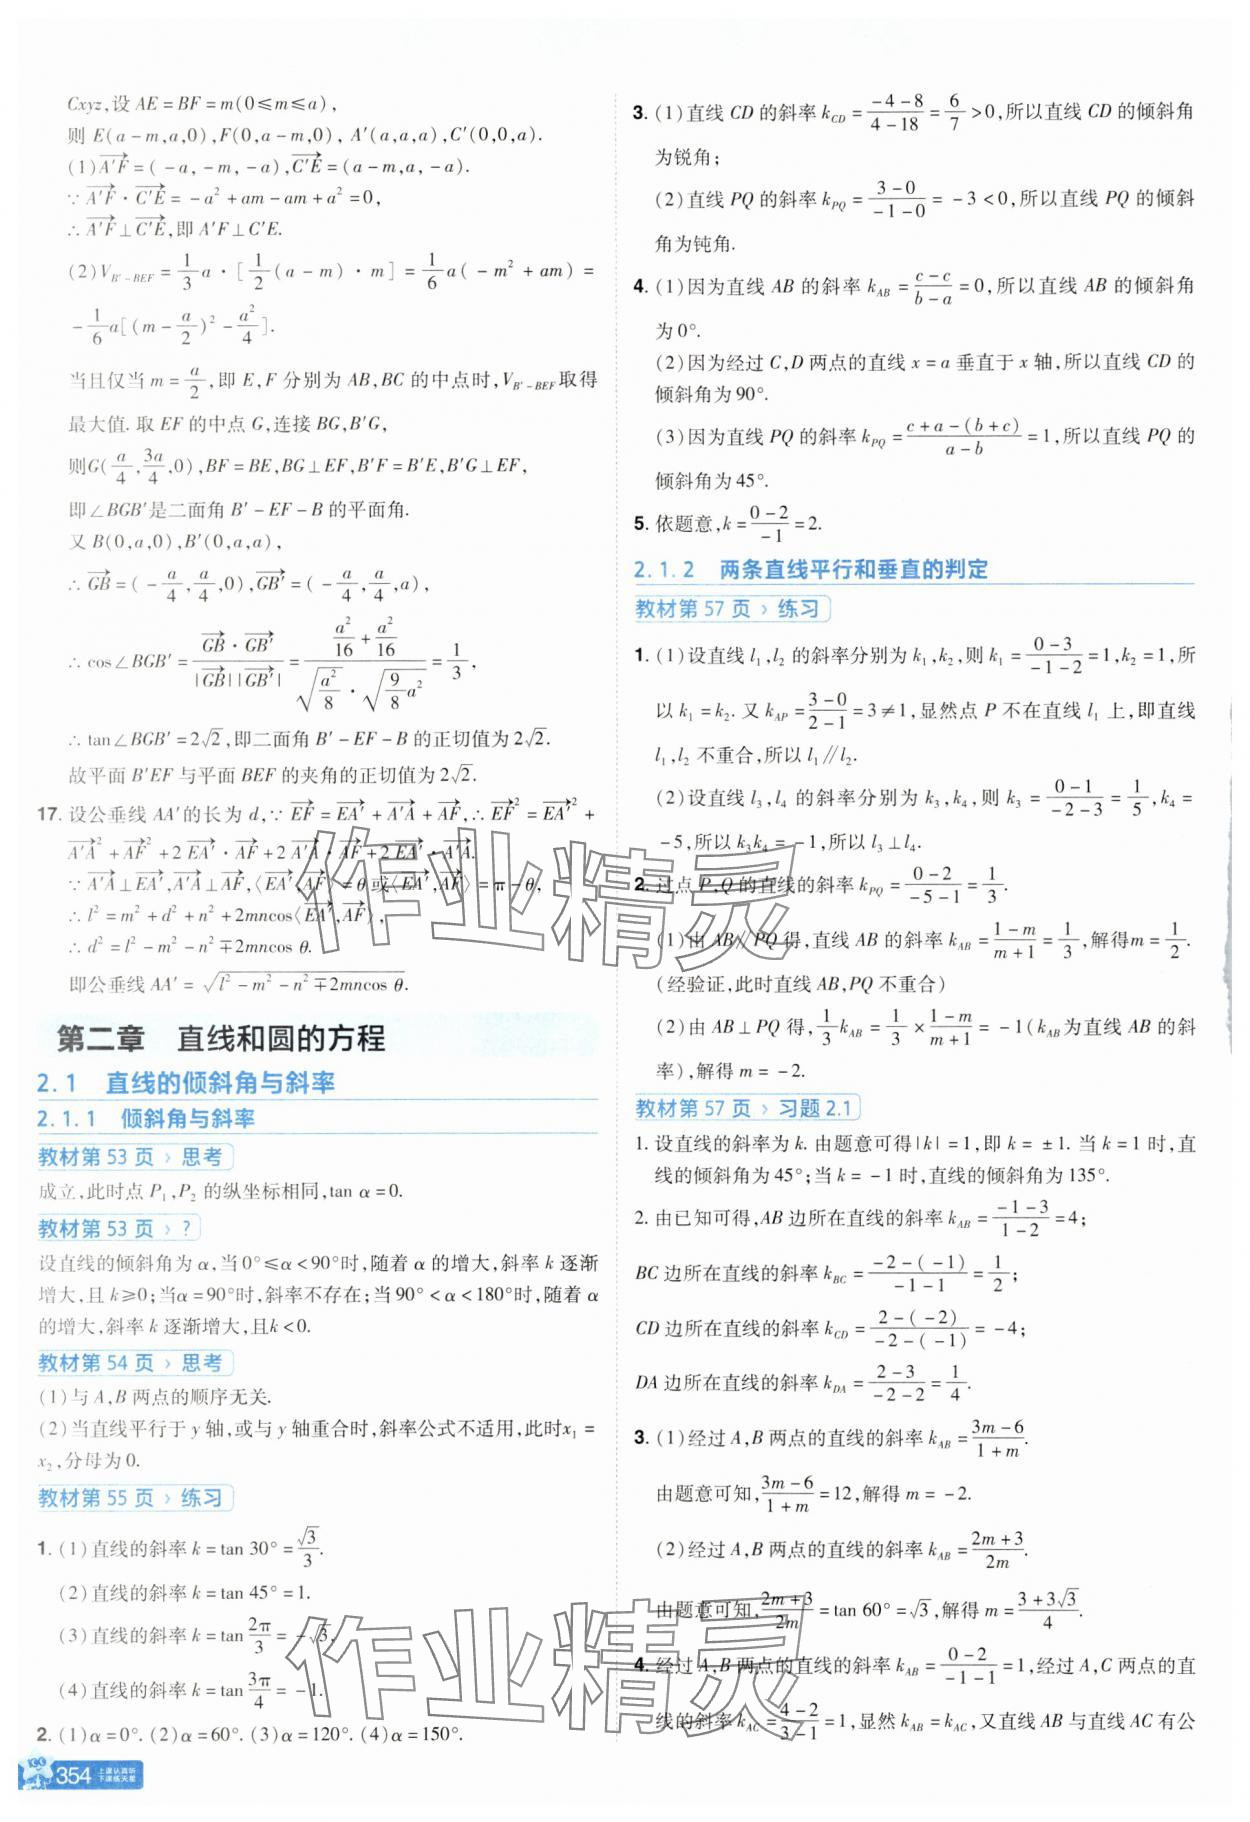 Cxyz,设 AE=BF=m(0≤m≤a),
则 E(a-m,a,0),F(0,a-m,0), A′(a,a,a),C′(0,0,a).
(1)$\overrightarrow{A'F}$=(-a,-m,-a),$\overrightarrow{C'E}$=(a-m,a,-a).
∵ $\overrightarrow{A'F}$·$\overrightarrow{C'E}$=-a²+am-am+a²=0,
∴ $\overrightarrow{A'F}$⊥$\overrightarrow{C'E}$,即 A′F⊥C′E.
(2)$V_{B'-BEF}$=$\frac{1}{3}$a·[$\frac{1}{2}$(a-m)·m]=$\frac{1}{6}$a(-m²+am)=
-$\frac{1}{6}$a[(m-$\frac{a}{2}$)²-$\frac{a^2}{4}$].
当且仅当 m=$\frac{a}{2}$,即 E,F 分别为 AB,BC 的中点时,$V_{B'-BEF}$取得
最大值. 取 EF 的中点 G,连接 BG,B′G,
则G($\frac{a}{4}$,$\frac{3a}{4}$,0),BF=BE,BG⊥EF,B′F=B′E,B′G⊥EF,
即∠BGB′是二面角 B′-EF-B 的平面角.
又 B(0,a,0),B′(0,a,a),
∴ $\overrightarrow{GB}$=(-$\frac{a}{4}$,$\frac{a}{4}$,0),$\overrightarrow{GB'}$=(-$\frac{a}{4}$,$\frac{a}{4}$,a),
∴ cos∠BGB′=$\frac{\overrightarrow{GB}·\overrightarrow{GB'}}{|\overrightarrow{GB}||\overrightarrow{GB'}|}$=$\frac{\frac{a^2}{16}+\frac{a^2}{16}}{\sqrt{\frac{a^2}{8}}·\sqrt{\frac{9}{8}a^2}}$=$\frac{1}{3}$,
∴ tan∠BGB′=2√2,即二面角 B′-EF-B 的正切值为 2√2.
故平面 B′EF 与平面 BEF 的夹角的正切值为 2√2.
17. 设公垂线 AA′的长为 d,∵ $\overrightarrow{EF}$=$\overrightarrow{EA'}$+$\overrightarrow{A'A}$+$\overrightarrow{AF}$,∴ $\overrightarrow{EF}^2$=$\overrightarrow{EA'}^2$+
$\overrightarrow{A'A}^2$+$\overrightarrow{AF}^2$+2$\overrightarrow{EA'}$·$\overrightarrow{AF}$+2$\overrightarrow{A'A}$·$\overrightarrow{AF}$+2$\overrightarrow{EA'}$·$\overrightarrow{A'A}$.
∵ $\overrightarrow{A'A}$⊥$\overrightarrow{EA'}$,$\overrightarrow{A'A}$⊥$\overrightarrow{AF}$,⟨$\overrightarrow{EA'}$,$\overrightarrow{AF}$⟩=θ或⟨$\overrightarrow{EA'}$,$\overrightarrow{AF}$⟩=π-θ,
∴ l²=m²+d²+n²+2mncos⟨$\overrightarrow{EA'}$,$\overrightarrow{AF}$⟩,
∴ d²=l²-m²-n²∓2mncos θ.
即公垂线 AA′=$\sqrt{l^2-m^2-n^2∓2mncos θ}$.
第二章 直线和圆的方程
2.1 直线的倾斜角与斜率
2.1.1 倾斜角与斜率
教材第 53 页 › 思考
成立,此时点 P₁,P₂ 的纵坐标相同,tan α=0.
教材第 53 页 › ?
设直线的倾斜角为 α,当 0°≤α<90°时,随着 α 的增大,斜率 k 逐渐
增大,且 k≥0;当α=90°时,斜率不存在;当 90°<α<180°时,随着 α
的增大,斜率 k 逐渐增大,且k<0.
教材第 54 页 › 思考
(1)与 A,B 两点的顺序无关.
(2)当直线平行于 y 轴,或与 y 轴重合时,斜率公式不适用,此时x₁=
x₂,分母为 0.
教材第 55 页 › 练习
1. (1)直线的斜率 k=tan 30°=$\frac{\sqrt{3}}{3}$.
(2)直线的斜率 k=tan 45°=1.
(3)直线的斜率 k=tan$\frac{2π}{3}$=-√3.
(4)直线的斜率 k=tan$\frac{3π}{4}$=-1.
2. (1)α=0°. (2)α=60°. (3)α=120°. (4)α=150°.
354 上课认真听
下课练天星
3. (1)直线 CD 的斜率 $k_{CD}$=$\frac{-4-8}{4-18}$=$\frac{6}{7}$>0,所以直线 CD 的倾斜角
为锐角;
(2)直线 PQ 的斜率 $k_{PQ}$=$\frac{3-0}{-1-0}$=-3<0,所以直线 PQ 的倾斜
角为钝角.
4. (1)因为直线 AB 的斜率 $k_{AB}$=$\frac{c-c}{b-a}$=0,所以直线 AB 的倾斜角
为 0°.
(2)因为经过 C,D 两点的直线 x=a 垂直于 x 轴,所以直线 CD 的
倾斜角为 90°.
(3)因为直线 PQ 的斜率 $k_{PQ}$=$\frac{c+a-(b+c)}{a-b}$=1,所以直线 PQ 的
倾斜角为 45°.
5. 依题意,k=$\frac{0-2}{-1}$=2.
2.1.2 两条直线平行和垂直的判定
教材第 57 页 › 练习
1. (1)设直线 l₁,l₂ 的斜率分别为 k₁,k₂,则 k₁=$\frac{0-3}{-1-2}$=1,k₂=1,所
以 k₁=k₂. 又 $k_{AP}$=$\frac{3-0}{2-1}$=3≠1,显然点 P 不在直线 l₁ 上,即直线
l₁,l₂ 不重合,所以 l₁∥l₂.
(2)设直线 l₃,l₄ 的斜率分别为 k₃,k₄,则 k₃=$\frac{0-1}{-2-3}$=$\frac{1}{5}$,k₄=
-5,所以 k₃k₄=-1,所以 l₃⊥l₄.
2. 过点 P,Q 的直线的斜率 $k_{PQ}$=$\frac{0-2}{-5-1}$=$\frac{1}{3}$.
(1)由 AB∥PQ 得,直线 AB 的斜率 $k_{AB}$=$\frac{1-m}{m+1}$=$\frac{1}{3}$,解得m=$\frac{1}{2}$.
(经验证,此时直线 AB,PQ 不重合)
(2)由 AB⊥PQ 得,$\frac{1}{3}k_{AB}$=$\frac{1}{3}$×$\frac{1-m}{m+1}$=-1($k_{AB}$为直线 AB 的斜
率),解得 m=-2.
教材第 57 页 › 习题 2.1
1. 设直线的斜率为 k. 由题意可得|k|=1,即 k=±1. 当 k=1 时,直
线的倾斜角为 45°;当 k=-1 时,直线的倾斜角为 135°.
2. 由已知可得,AB 边所在直线的斜率 $k_{AB}$=$\frac{-1-3}{1-2}$=4;
BC 边所在直线的斜率 $k_{BC}$=$\frac{-2-(-1)}{-1-1}$=$\frac{1}{2}$;
CD 边所在直线的斜率 $k_{CD}$=$\frac{2-(-2)}{-2-(-1)}$=-4;
DA 边所在直线的斜率 $k_{DA}$=$\frac{2-3}{-2-2}$=$\frac{1}{4}$.
3. (1)经过 A,B 两点的直线的斜率 $k_{AB}$=$\frac{3m-6}{1+m}$.
由题意可知,$\frac{3m-6}{1+m}$=12,解得 m=-2.
(2)经过 A,B 两点的直线的斜率 $k_{AB}$=$\frac{2m+3}{2m}$.
由题意可知,$\frac{2m+3}{2m}$=tan 60°=√3,解得 m=$\frac{3+3\sqrt{3}}{4}$.
4. 经过 A,B 两点的直线的斜率 $k_{AB}$=$\frac{0-2}{-1-1}$=1,经过 A,C 两点的直
线的斜率 $k_{AC}$=$\frac{4-2}{3-1}$=1,显然 $k_{AB}$=$k_{AC}$,又直线 AB 与直线 AC 有公
作业精灵
作业精灵